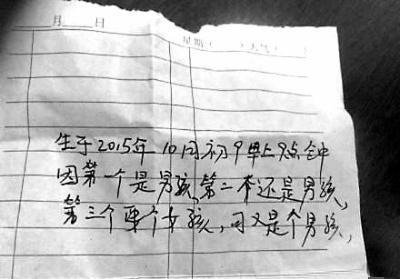 月 日
星期( )天气( )
生于2015年10月初9早上9点钟
因第一个是男孩,第二个还是男孩,
第三个要个女孩,可又是个男孩,